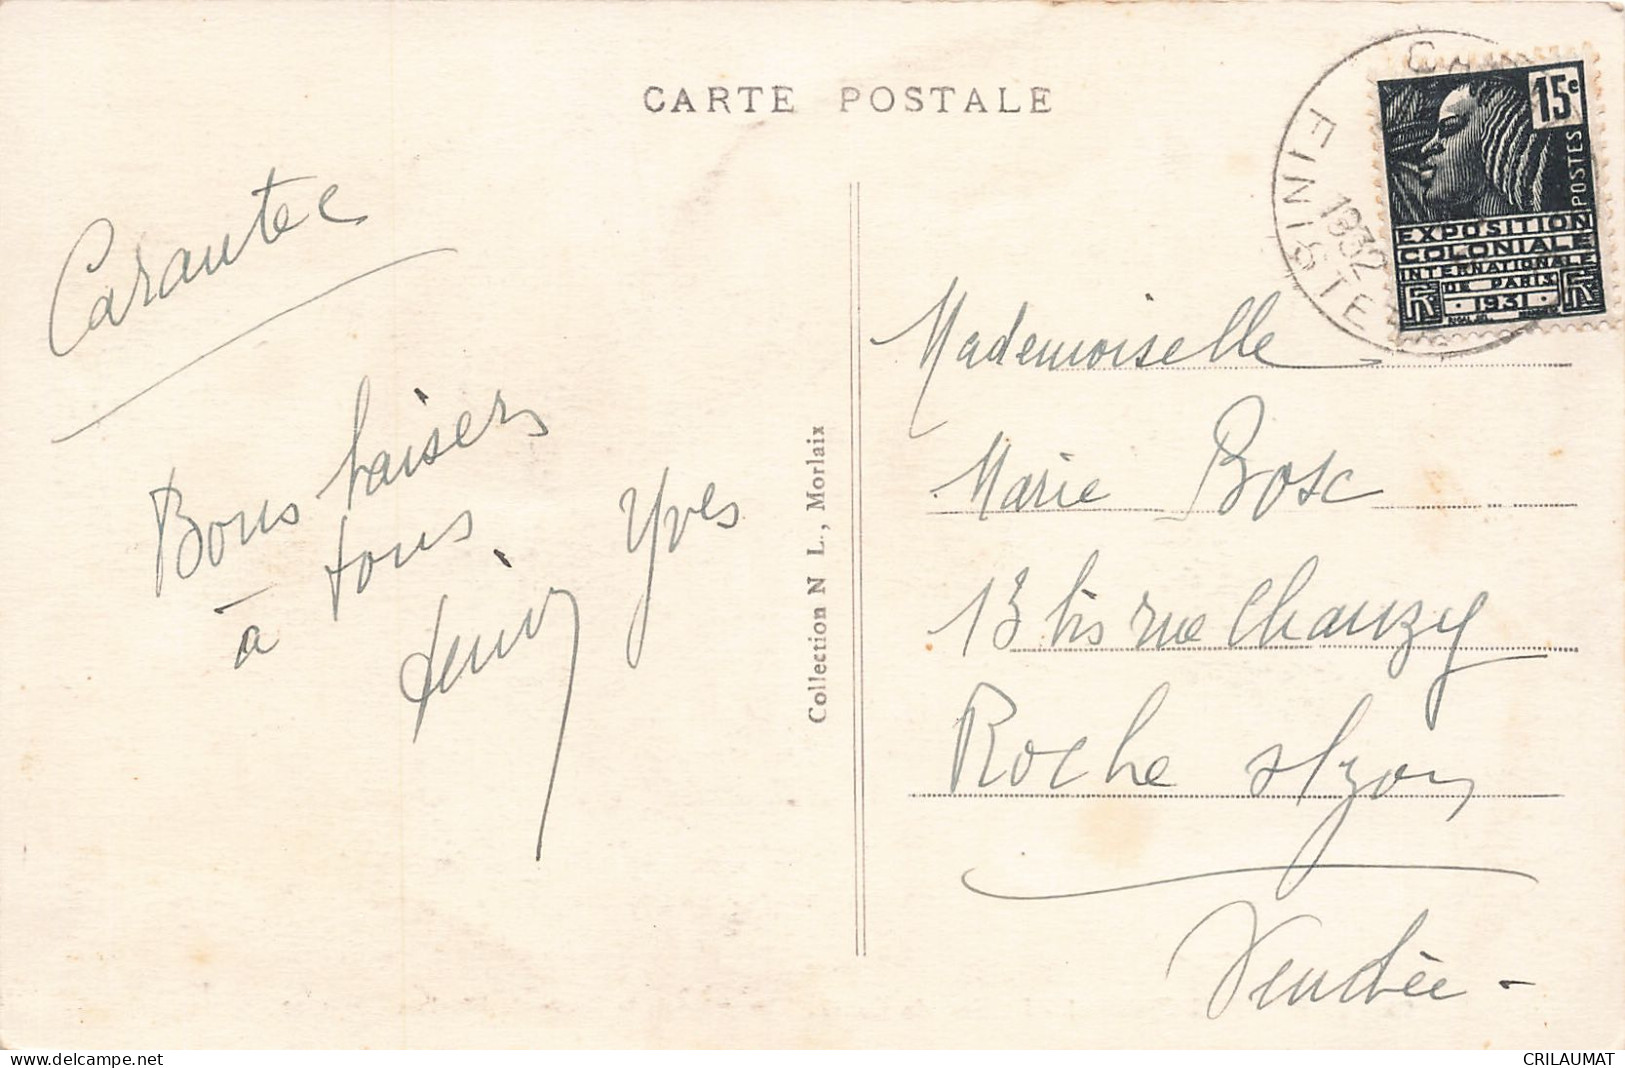 CARTE POSTALE
Carantec
Bons baisers
à tous
Yves
Collection N L., Morlaix
15c
POSTES
EXPOSITION
COLONIALE
INTERNATIONALE
DE PARIS
1931
RF
RF
FINISTE
1932
Mademoiselle
Marie Bosc
13 bis rue Chanzy
Roche s/yon
Vendée -
delcampe.net
CRILAUMAT